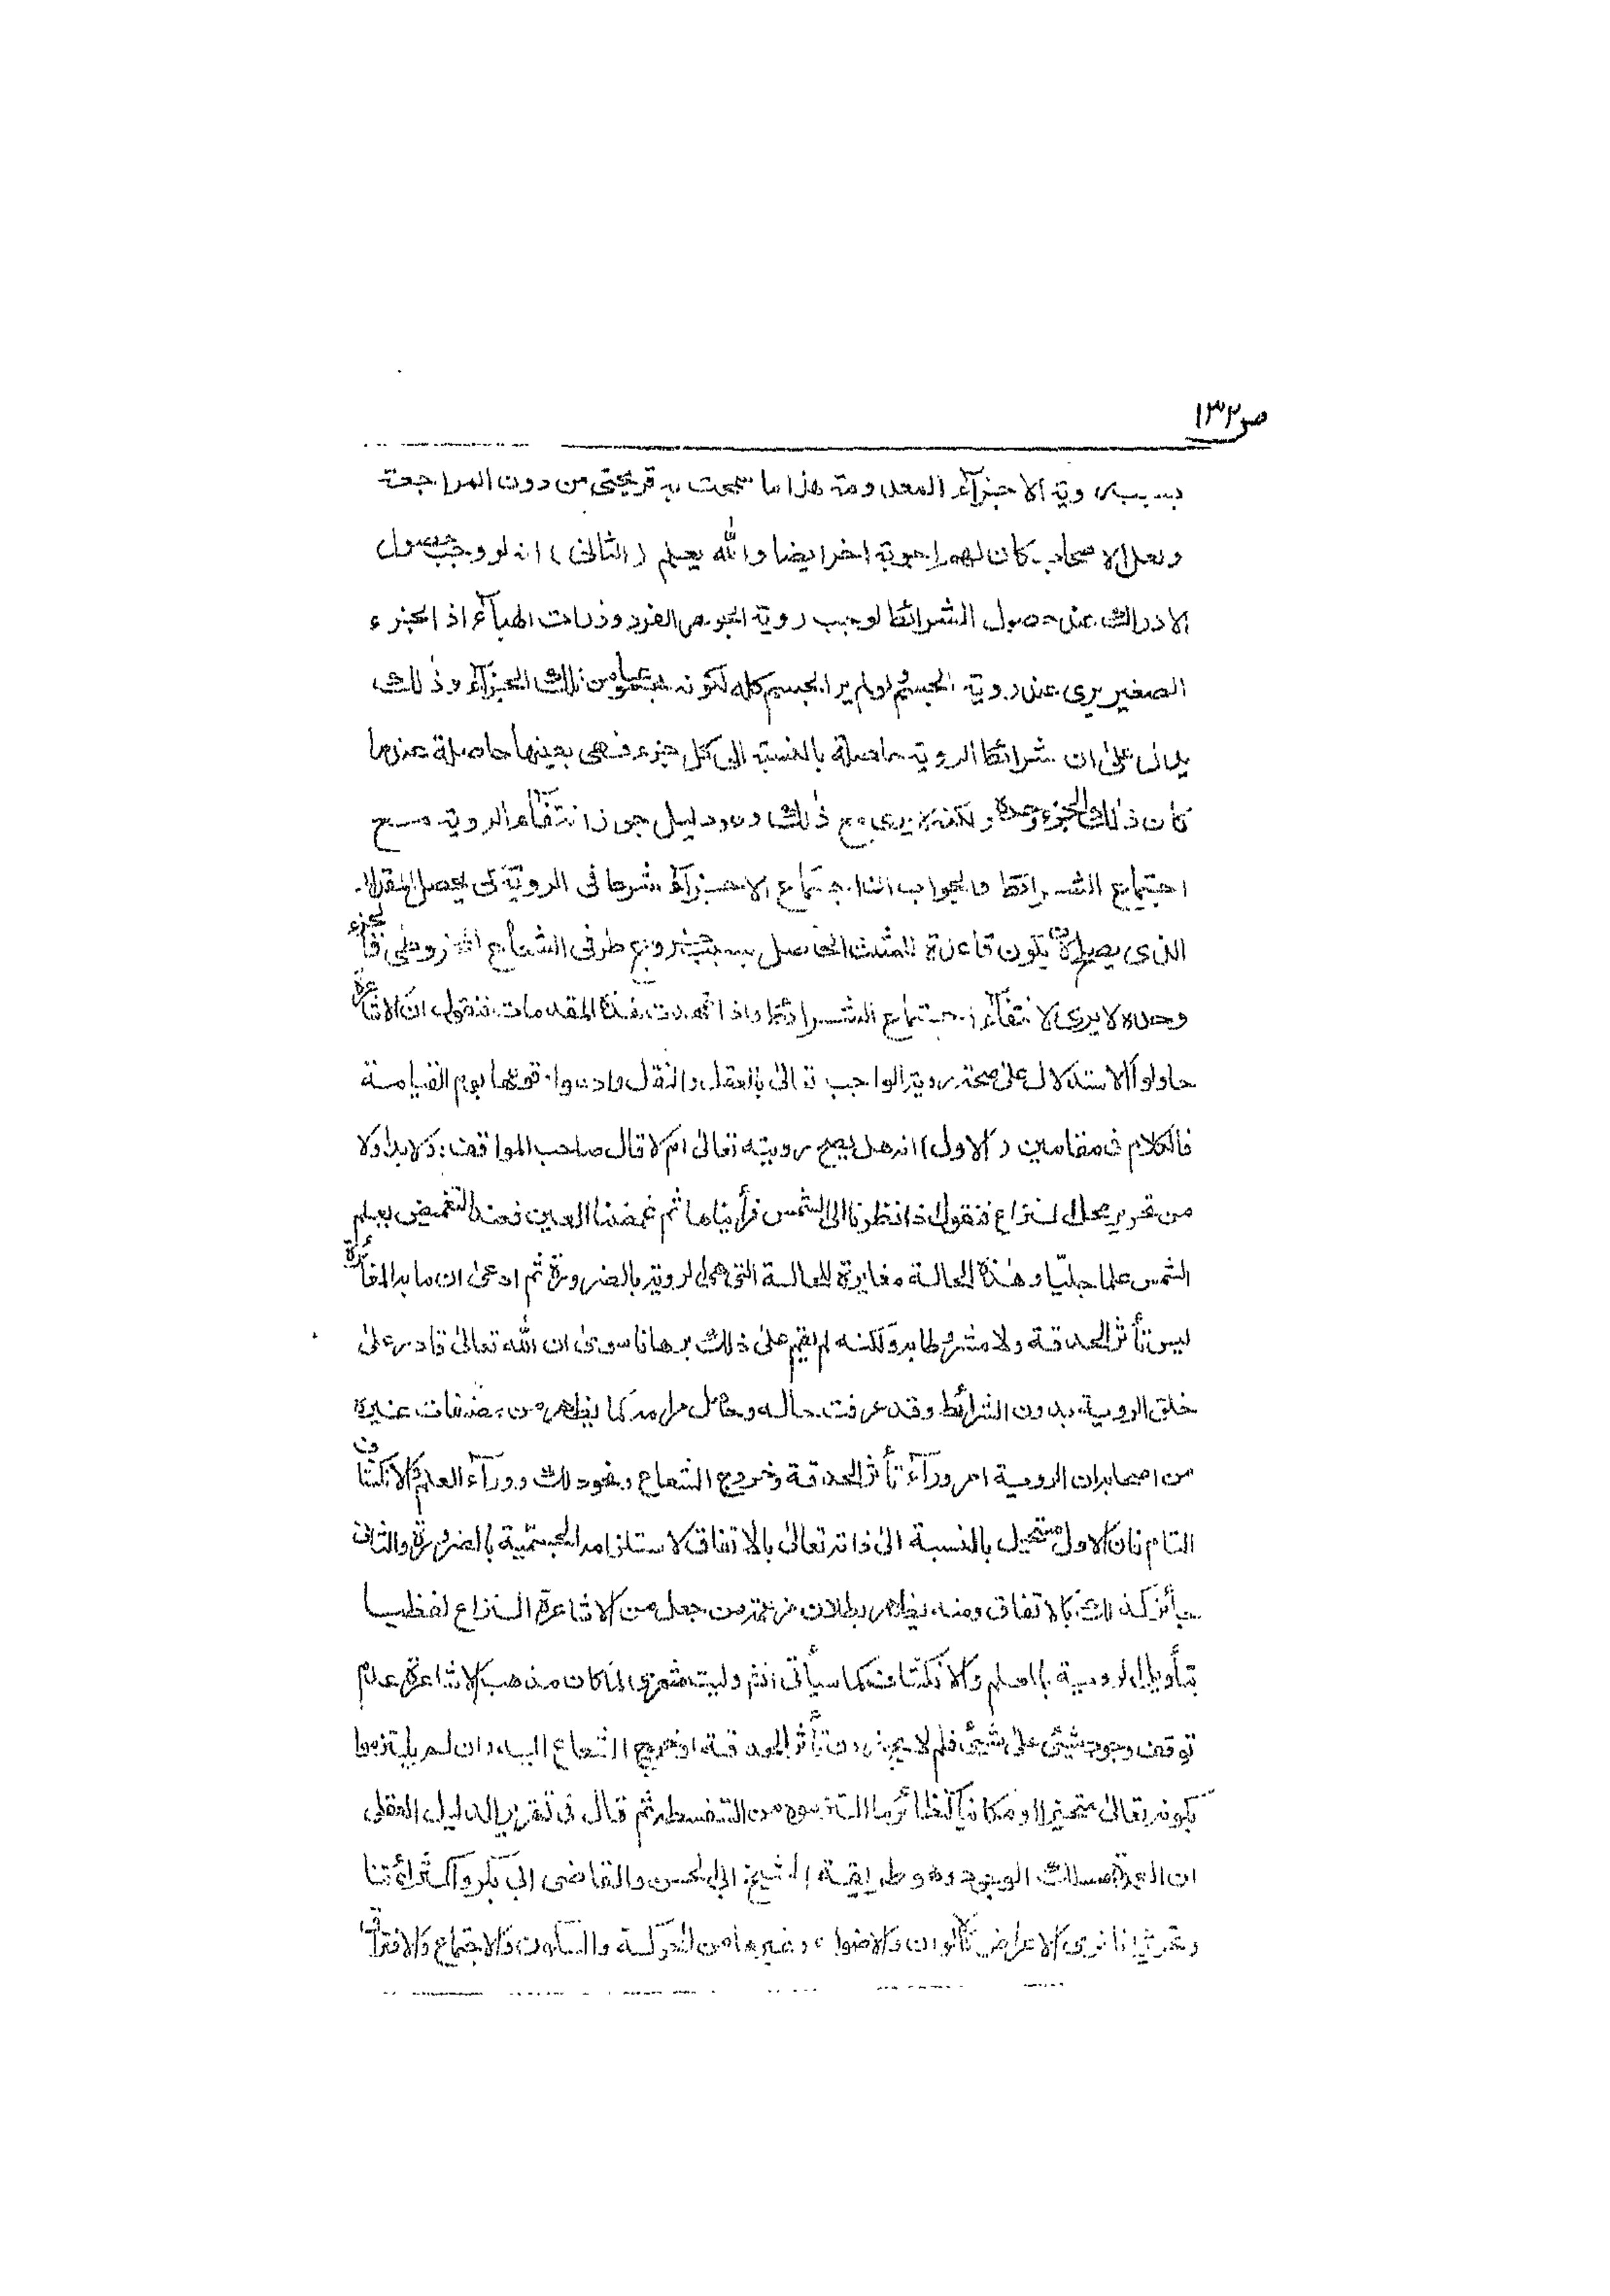 ص١٣٢
بسبب روية الاجزآء المعدومة هذا ما سمحت به قريحتى من دون المراجعة
ولعل الاصحاب كان لهم اجوبة اخر ايضا والله يعلم (الثانى) انه لو وجب حصول
الادراك عند حصول الشرائط لوجب روية الجوهر الفرد وذرات الهبآء اذ الجزء
الصغير يرى عند روية الجسم ولولم ير الجسم كله لكونه مجتمعا من تلك الاجزآء وذلك
يدل على ان شرائط الروية حاصلة بالنسبة الى كل جزء فهى بعينها حاصلة عندما
كان ذلك الجزء وحده ولكنه لا يرى مع ذلك وهو دليل جواز انتفآء الروية مع
اجتماع الشرائط والجواب ان اجتماع الاجزآء شرط فى الروية كى يحصل المقدار
الذى يصلح لان يكون قاعدة للمثلث الحاصل بسبب خروج طرفى الشعاع المخروطى فالجزء
وحده لا يرى لانتفآء اجتماع الشرائط واذا تمهدت هذه المقدمات فنقول ان الاشاعرة
حاولوا الاستدلال على صحة روية الواجب تعالى بالعقل والنقل وادعوا وقوعها يوم القيامة
فالكلام فى مقامين (الاول) انه هل يصح رويته تعالى ام لا قال صاحب المواقف: ولا بد اولا
من تحرير محل النزاع فنقول اذا نظرنا الى الشمس فرأيناها ثم غمضنا العين فعند التغميض يعلم
الشمس علما جليا وهذه الحالة مغايرة للحالة التى هى الروية بالضرورة ثم ادعى ان ما به المغائرة
ليس تأثر الحدقة ولا مشروطا به ولكنه لم يقم على ذلك برهانا سوى ان الله تعالى قادر على
خلق الروية بدون الشرائط وقد عرفت حاله وحاصل مرامه كما يظهر من مصنفات غيره
من اصحابه ان الروية امر ورآء تأثر الحدقة وخروج الشعاع ونحو ذلك وورآء العلم والانكشاف
التام فان الاول مستحيل بالنسبة الى ذاته تعالى بالاتفاق لاستلزامه الجسمية بالضرورة والثانى
جائز كذلك بالاتفاق ومنه يظهر بطلان من جعل من الاشاعرة النزاع لفظيا
بتأويل الروية بالعلم والانكشاف كما سيأتى انشر وليت شعرى لما كان مذهب الاشاعرة عدم
توقف وجود شيئ على شيئ فلم لا يجوزون تأثر الحدقة او خروج الشعاع اليه وان لم يلتزموا
بكونه تعالى متحيزا او مكانيا كنظائر ما التزموه من التفسطة ثم قال فى تقرير الدليل العقلى
ان العمدة مسلك الوجود وهو طريقة الشيخ ابى الحسن والقاضى ابى بكر واكثر ائمتنا
وتحريره انا نرى الاعراض كالالوان والاضواء وغيرهما من الحركة والسكون والاجتماع والافتراق